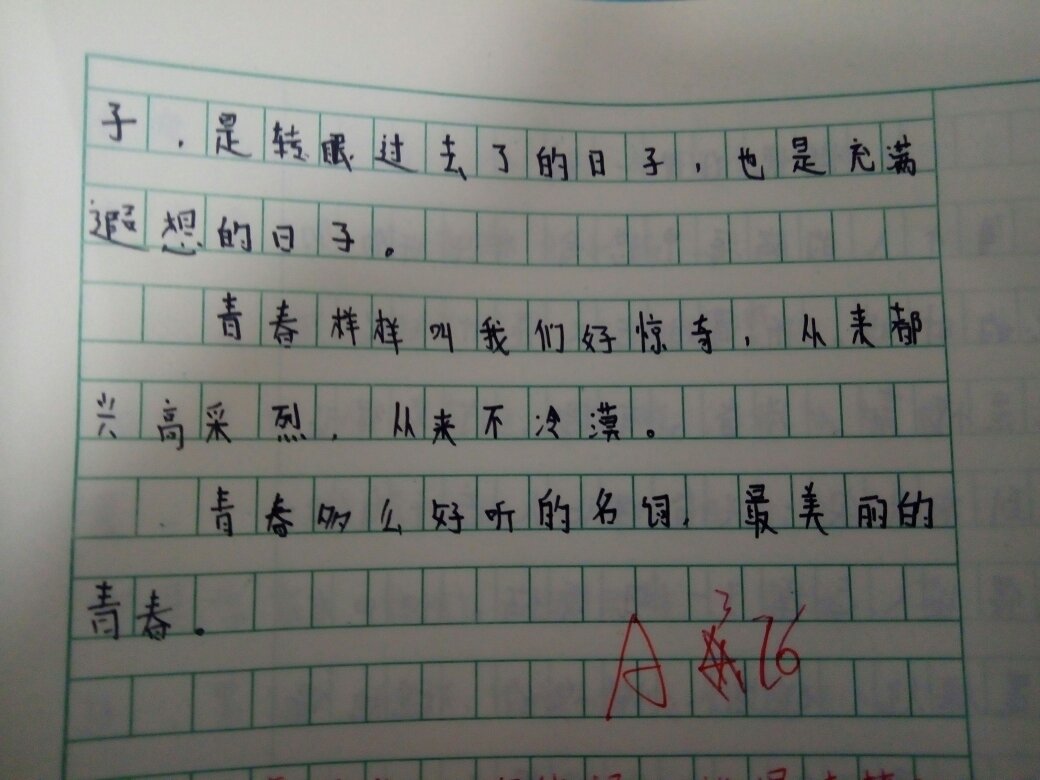 子，是转眼过去了的日子，也是充满
遐想的日子。
青春样样叫我们好惊奇，从来都
兴高采烈，从来不冷漠。
青春多么好听的名词，最美丽的
青春。
A